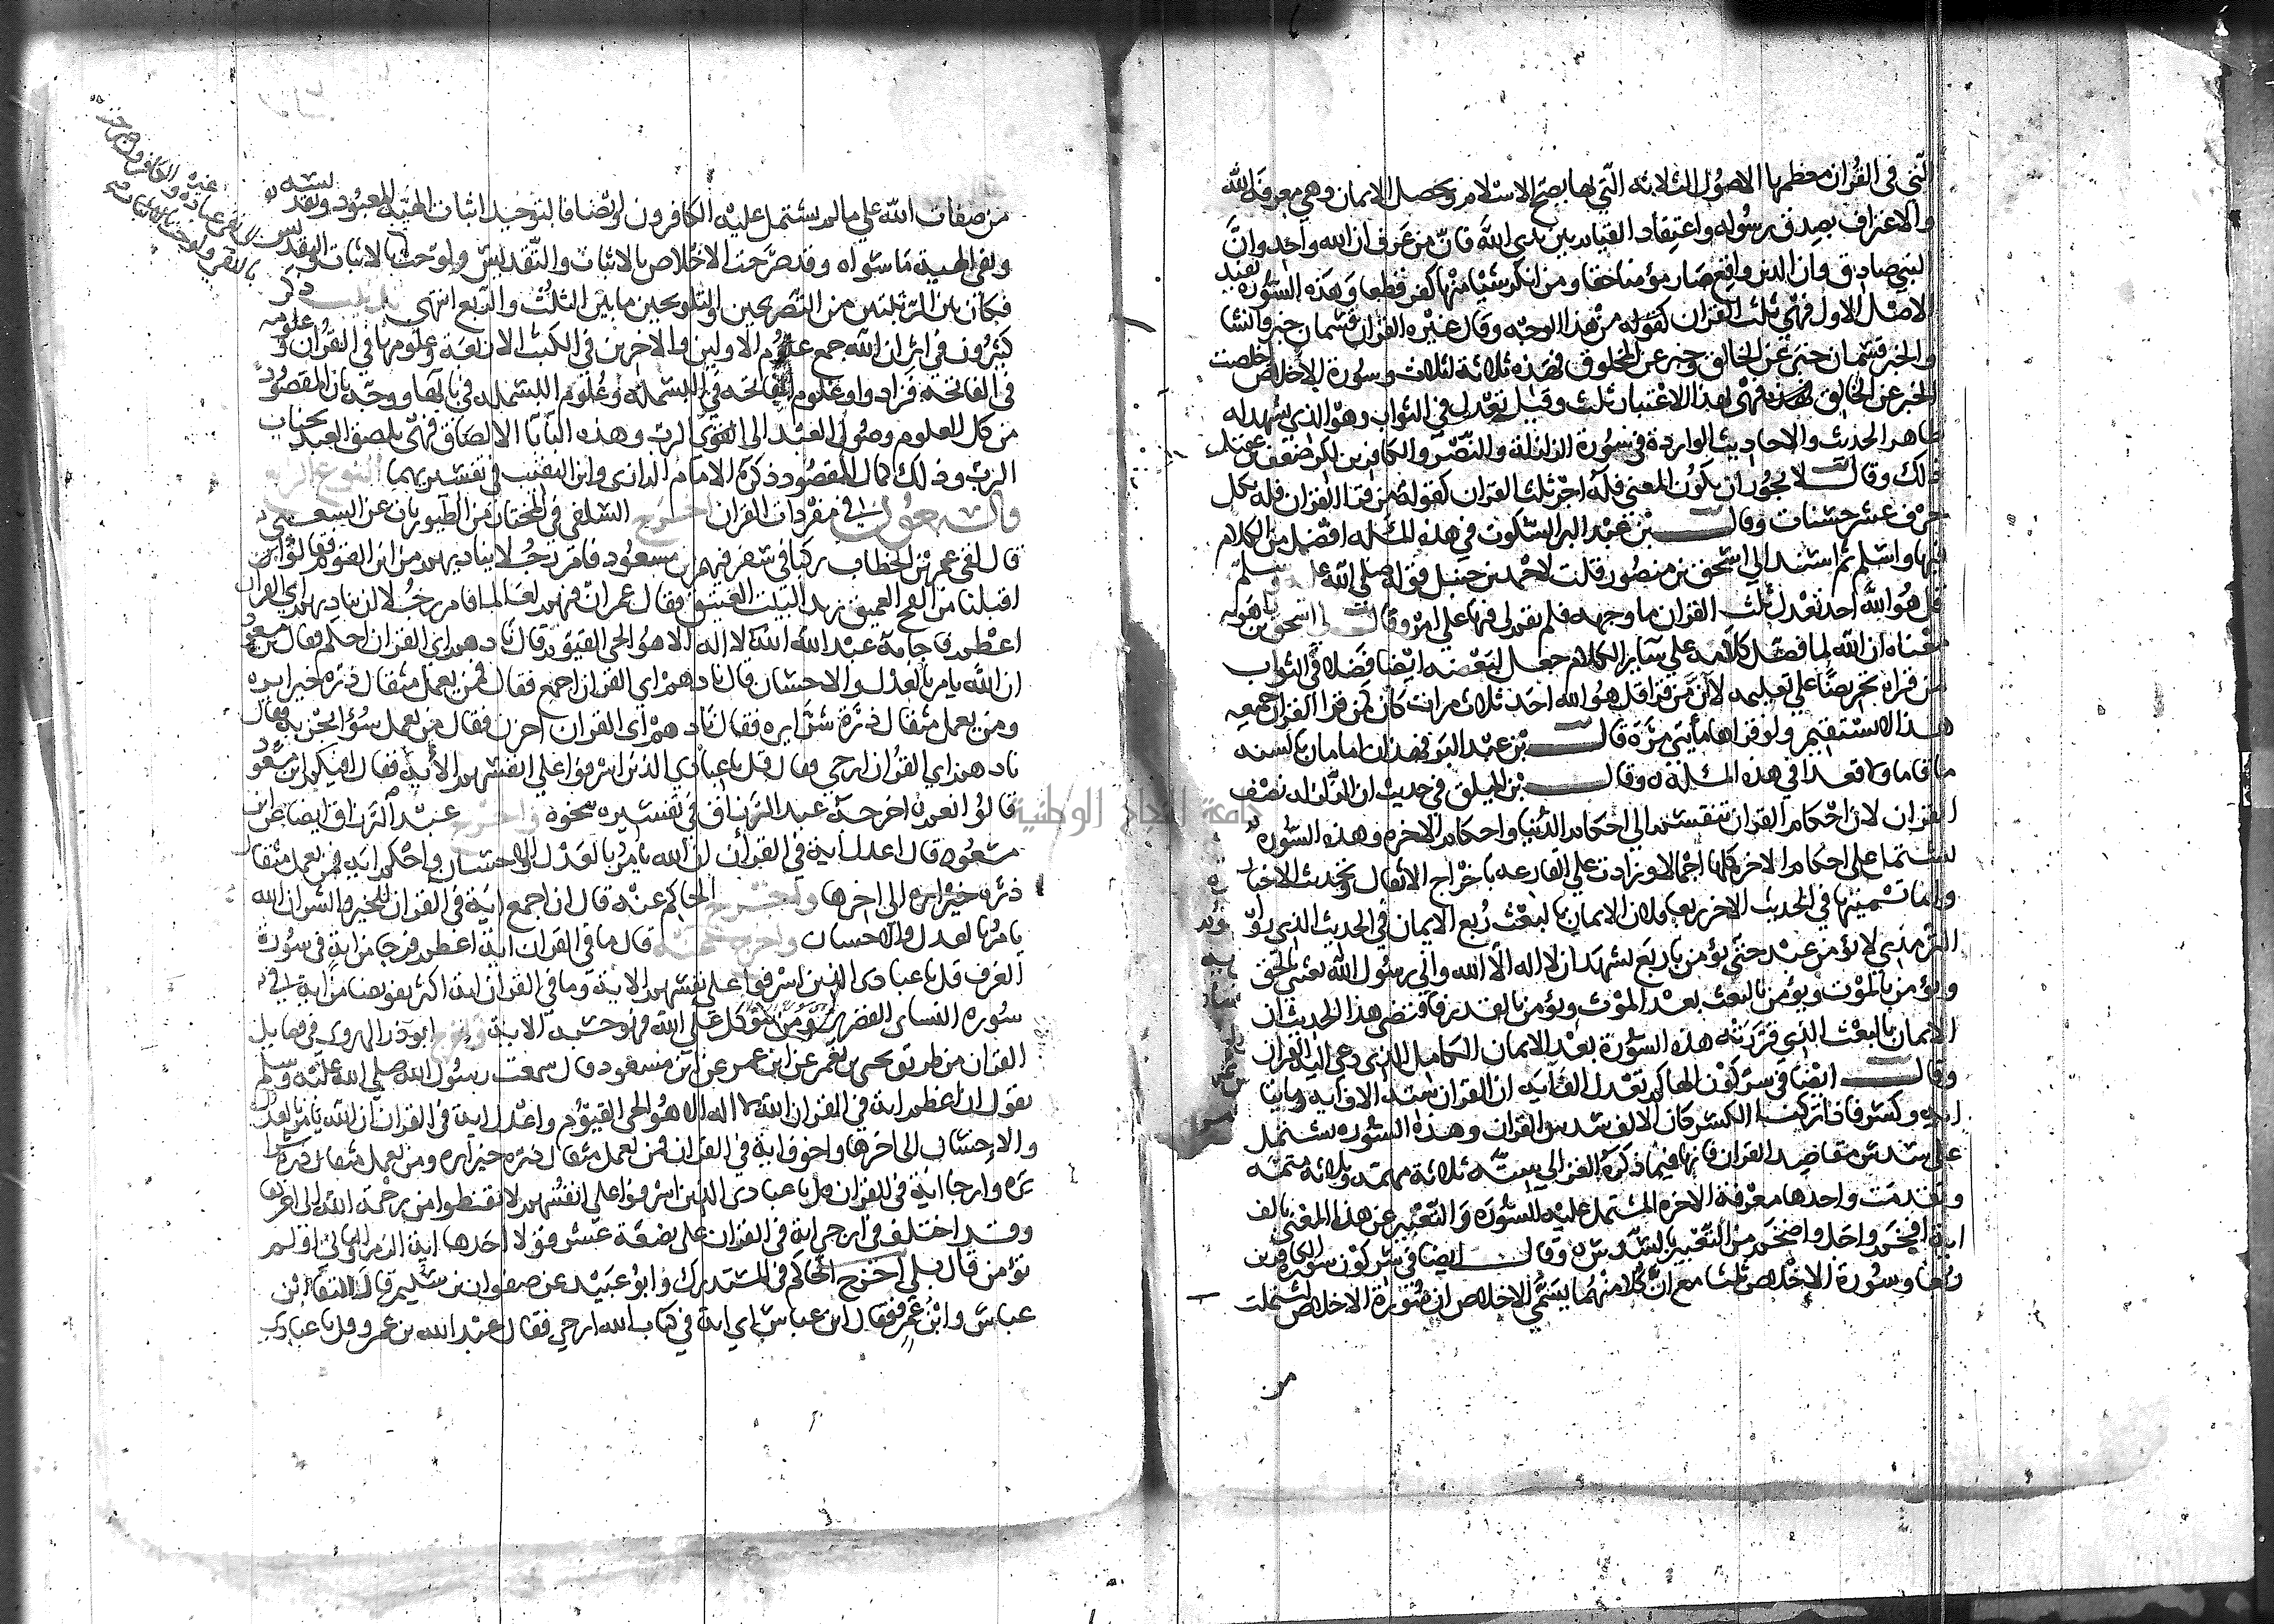 التي في القران معظمها الاصول الثلاثه التي بها يصح الاسلام ويحصل الايمان وهي معرفة الله
والاعتراف بصدق رسوله واعتقاد القيام بين يدي الله فان من عرف ان الله واحد وان
النبي صادق وان الدين واقع صار مؤمنا حقا ومن انكر شيا منها كفر قطعا وهذه السورة تفيد
الاصل الاول فهي ثلث القران كقوله من هذا الوجه وقال غيره القران قسمان خبر وانشا
والخبر قسمان خبر عن الخالق وخبر عن المخلوق فهذه ثلاثة اثلاث وسورة الاخلاص اخلصت
الخبر عن الخالق فهي بهذا الاعتبار ثلث وقيل تعدل في الثواب وهو الذي يشهد له
ظاهر الحديث والاحاديث الواردة في سورة الزلزلة والنصر والكافرين لكن ضعف بن عقيل
ذلك وقال لا يجوز ان يكون المعنى فله اجر ثلث القران كقوله من قرا القران فله بكل
حرف عشر حسنات وقال بن عبد البر السكوت في هذه المسله افضل من الكلام
فيها واسلم ثم اسند الي اسحق بن منصور قلت لاحمد بن حنبل قوله صلي الله عليه وسلم
قل هو الله احد تعدل ثلث القران ما وجهه فلم يقم لي فيها علي امر وقال لي اسحق بن راهويه
معناه ان الله لما فضل كلامه علي ساير الكلام جعل لبعضه ايضا فضلا في الثواب
لمن قراه تحريضا علي تعليمه لا ان من قرا قل هو الله احد ثلاث مرات كان كمن قرا القران جميعه
هذا لا يستقيم ولو قراها مايتي مرة قال بن عبد البر فهذان امامان بالسنه
ما قاما ولا قعدا في هذه المسله وقال بن الميلق في حديث ان الزلزله نصف
القران لان احكام القران تنقسم الي احكام الدنيا واحكام الاخره وهذه السوره
تشتمل علي احكام الاخرة كلها اجمالا وزادت علي القارعه باخراج الاثقال وتحديث الاخبار
واما تسميتها في الحديث الاخر ربعا فلان الايمان بالبعث ربع الايمان في الحديث الذي رواه
الترمذي لا يؤمن عبد حتي يؤمن باربع يشهد ان لا اله الا الله واني رسول الله بعثني بالحق
ويؤمن بالموت ويؤمن بالبعث بعد الموت ويؤمن بالقدر فاقتضى هذا الحديث ان
الايمان بالبعث الذي قررته هذه السورة بعد الايمان الكامل الذي دعي اليه القران
وقال ايضا في سر كون الهاكم تعدل الف اية ان القران ستة الاف اية ومايتا
اية وكسر فاذا تركنا الكسر كان الالف سدس القران وهذه السورة تشتمل
علي سدس مقاصد القران فانها فيما ذكره الغزالي ستة ثلاثة مهمة وثلاثة متمة
وتقدمت واحدها معرفة الاخرة المشتمل عليه السورة والتعبير عن هذا المعني بالف
اية افخم واجل واضخم من التعبير بالسدس وقال ايضا في سر كون سورة الكافرين
ربعا وسورة الاخلاص ثلثا مع ان كلا منهما يسمي الاخلاص ان سورة الاخلاص اشتملت
من
من صفات الله علي ما لم يشتمل عليه الكافرون وايضا فالتوحيد اثبات الهية المعبود وتقديسه
ونفي الهية ما سواه وقد صرحت الاخلاص بالاثبات والتقديس ولوحت
فكان بين الرتبتين من التصريحين والتلويحين ما بين الثلث والربع انتهى تذنيب ذكر
كثيرون في اثر ان الله جمع علوم الاولين والاخرين في الكتب الاربعة وعلومها في القران وعلومه
في الفاتحة فزادوا وعلوم الفاتحة في البسملة وعلوم البسملة في بايها ووجه بان المقصود
من كل العلوم وصول العبد الى الرب وهذه البا با الالصاق فهي تلصق العبد بجناب
الرب وذلك كمال المقصود ذكره الامام الرازي وابن النقيب في تفسيريهما النوع الرابع
والسبعون في مفردات القران اخرج السلفي في المختار من الطيوريات عن الشعبي
قال لقي عمر بن الخطاب ركبا في سفر فيهم بن مسعود فامر رجلا يناديهم من اين القوم فقالوا
اقبلنا من الفج العميق نريد البيت العتيق فقال عمر ان فيهم لعالما فامر رجلا ان يناديهم اي القران
اعظم فاجابه عبد الله الله لا اله الا هو الحي القيوم قال نادهم اي القران احكم فقال بن مسعود
ان الله يامر بالعدل والاحسان قال نادهم اي القران اجمع فقال فمن يعمل مثقال ذرة خيرا يره
ومن يعمل مثقال ذرة شرا يره فقال نادهم اي القران احزن فقال من يعمل سوا يجز به فقال
نادهم اي القران ارجي فقال قل يا عبادي الذين اسرفوا علي انفسهم الاية فقال افيكم ابن مسعود
قالوا نعم اخرجه عبد الرزاق في تفسيره بنحوه واخرج عبد الرزاق ايضا عن ابن
مسعود قال اعدل اية في القران ان الله يامر بالعدل والاحسان واحكم اية فمن يعمل مثقال
ذرة خيرا يره الي اخرها واخرج الحاكم عنه قال ان اجمع اية في القران للخير والشر ان الله
يامر بالعدل والاحسان واخرج عنه قال ما في القران اية اعظم فرجا من اية في سورة
الغرف قل يا عبادي الذين اسرفوا علي انفسهم الاية وما في القران اية اكثر تفويضا من اية في
سورة النساء القصرى ومن يتوكل علي الله فهو حسبه الاية واخرج ابو ذر الهروي في فضايل
القران من طريق يحيى بن يعمر عن ابن عمر عن ابن مسعود قال سمعت رسول الله صلي الله عليه وسلم
يقول ان اعظم اية في القران الله لا اله الا هو الحي القيوم واعدل اية في القران ان الله يامر بالعدل
والاحسان الى اخرها واخوف اية في القران فمن يعمل مثقال ذرة خيرا يره ومن يعمل مثقال ذرة شرا
يره وارجا اية في القران قل يا عبادي الذين اسرفوا علي انفسهم لا تقنطوا من رحمة الله الى اخرها
وقد اختلف في ارجي اية في القران على بضعة عشر قولا احدها اية الزمر الثاني اولم
تؤمن قال بلي اخرج الحاكم في المستدرك وابو عبيد عن صفوان بن سليم قال التقا ابن
عباس وابن عمرو فقال ابن عباس اي اية في كتاب الله ارجي فقال عبد الله بن عمرو قل يا عبادي
جامعة النجاح الوطنية